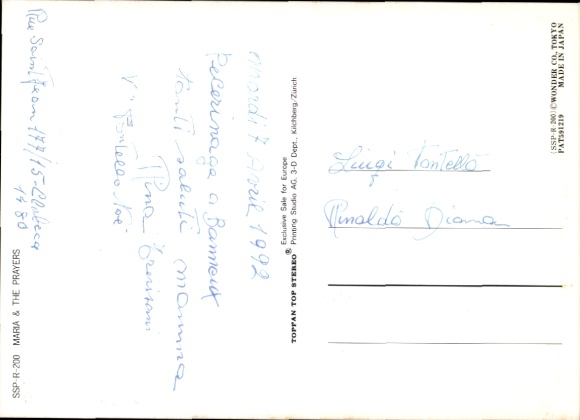 mardi 7 Avril 1992
Pelerinage a Banneux
tanti saluti mamma
Nina
Fontello Noè
Rue Saint Jean 177/15
1480
Luigi Fontello
Rinaldo Diana
SSP-R-200 MARIA & THE PRAYERS
TOPPAN TOP STEREO®
Exclusive Sale for Europe
Printing Studio AG, 3-D Dept., Kilchberg/Zürich
(SSP-R-200)©WONDER CO., TOKYO
PAT591219 MADE IN JAPAN